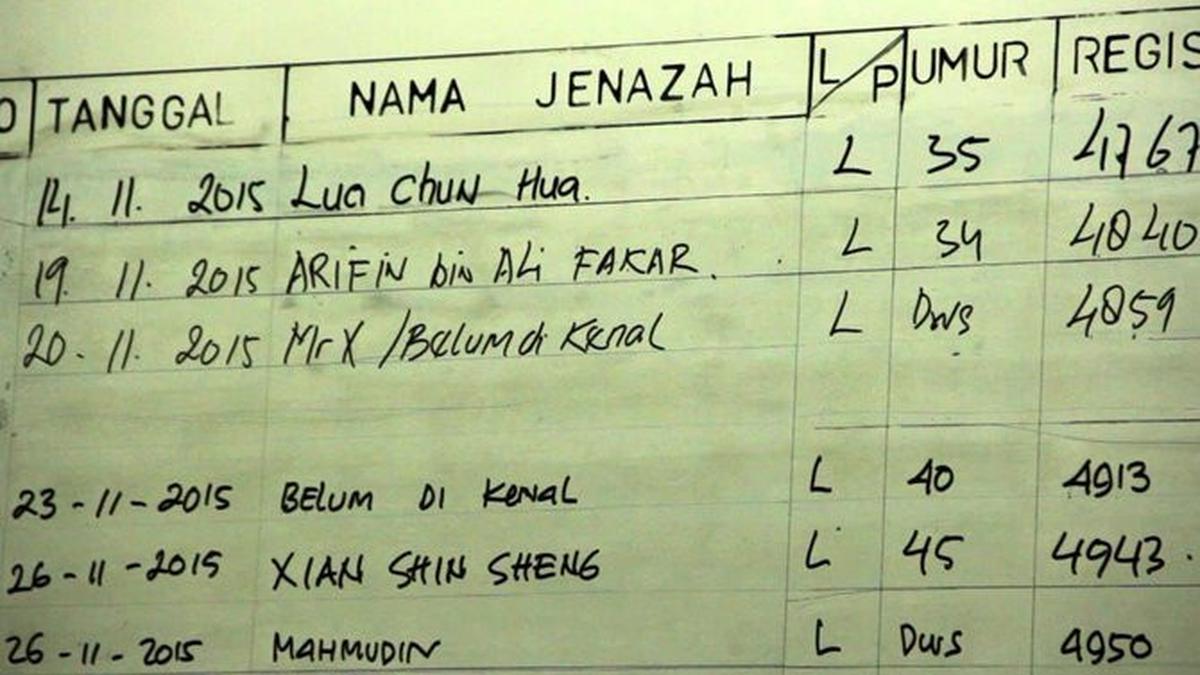 O TANGGAL NAMA JENAZAH L/P UMUR REGIS
14. 11. 2015 Lua Chun Hua. L 35 4767
19. 11. 2015 ARIFIN bin ALi FAKAR. L 34 4840
20. 11. 2015 Mr X /Belum di Kenal L Dws 4859
23-11-2015 BELUM DI KENAL L 40 4913
26-11-2015 XIAN SHIN SHENG L 45 4943.
26-11-2015 MAHMUDIN L Dws 4950